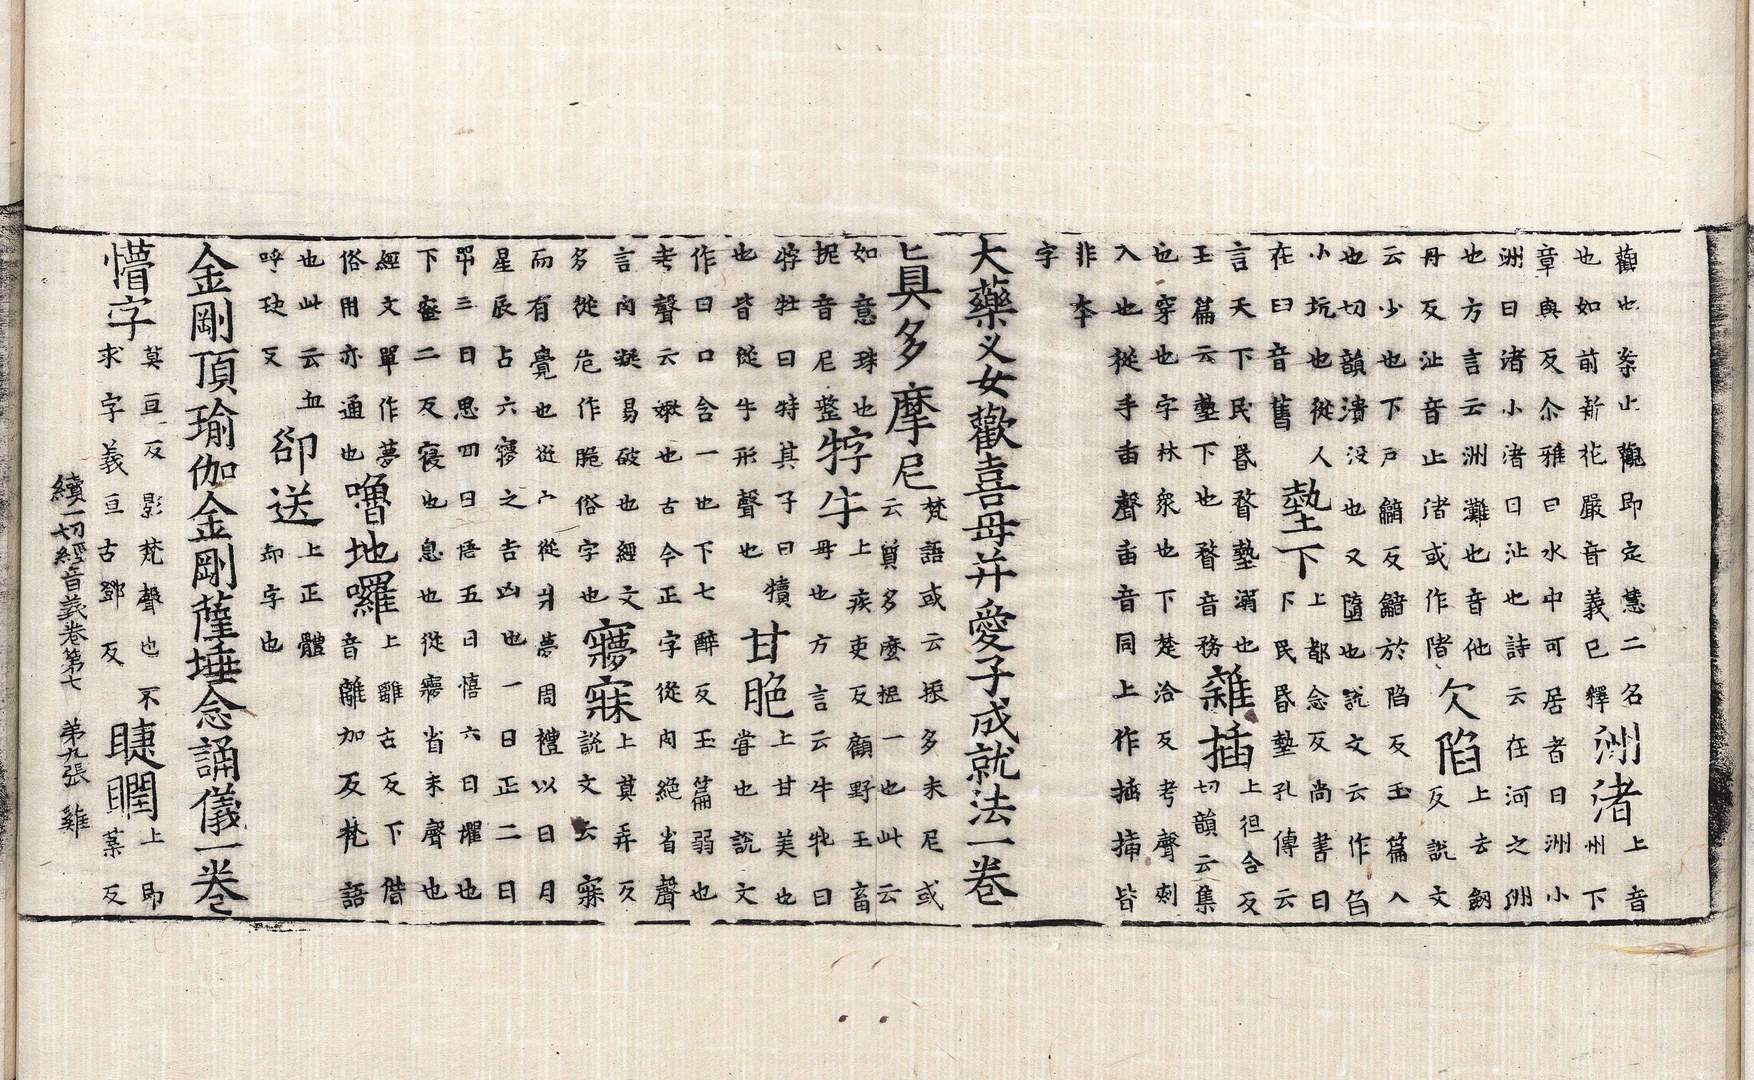 觀也柰止觀即定慧二名
也如前新花嚴音義已釋
洲渚
上音
州下
章與反尒雅曰水中可居者曰洲小
洲曰渚小渚曰沚也詩云在河之洲
也方言云洲灘也音他
丹反沚音止渚或作陼
欠陷
上去劒
反說文
云少也下戶韽反韽於陷反玉篇入
也切韻潰没也又墮也說文云作臽
小坑也從人
在臼音舊
墊下
上都念反尚書曰
下民昬墊孔傳云
言天下民昬瞀墊溺也
玉篇云墊下也瞀音務
雜插
上徂合反
切韻云集
也穿也字林衆也下楚洽反考聲刺
入也從手臿聲臿音同上作揷揷皆
非夲
字
大藥叉女歡喜母并愛子成就法一卷
真多摩尼
梵語或云振多末尼或
云質多麼抳一也此云
如意珠也
抳音尼整
牸牛
上疾吏反顧野王畜
母也方言云牛牝曰
牸牡曰特其子曰犢
也皆從牛形聲也
甘脆
上甘美也
嘗也說文
作曰口含一也下七醉反玉篇弱也
考聲云嫩也古今正字從肉絕省聲
言肉凝易破也經文
多從危作脆俗字也
㝱寐
上莫弄反
說文云寐
而有覺也從宀從爿夢周禮以日月
星辰占六㝱之吉凶也一曰正二曰
咢三曰思四曰悟五曰憘六曰懼也
下蜜二反寢也息也從㝱省未聲也
經文單作夢
俗用亦通也
嚕地囉
上離古反下借
音離加反梵語
也此云血
呼玦反
卻送
上正體
却字也
金剛頂瑜伽金剛薩埵念誦儀一卷
懵字
莫亘反影梵聲也不
求字義亘古鄧反
睫瞤
上即
葉反
續一切經音義卷第七 第九張 雞